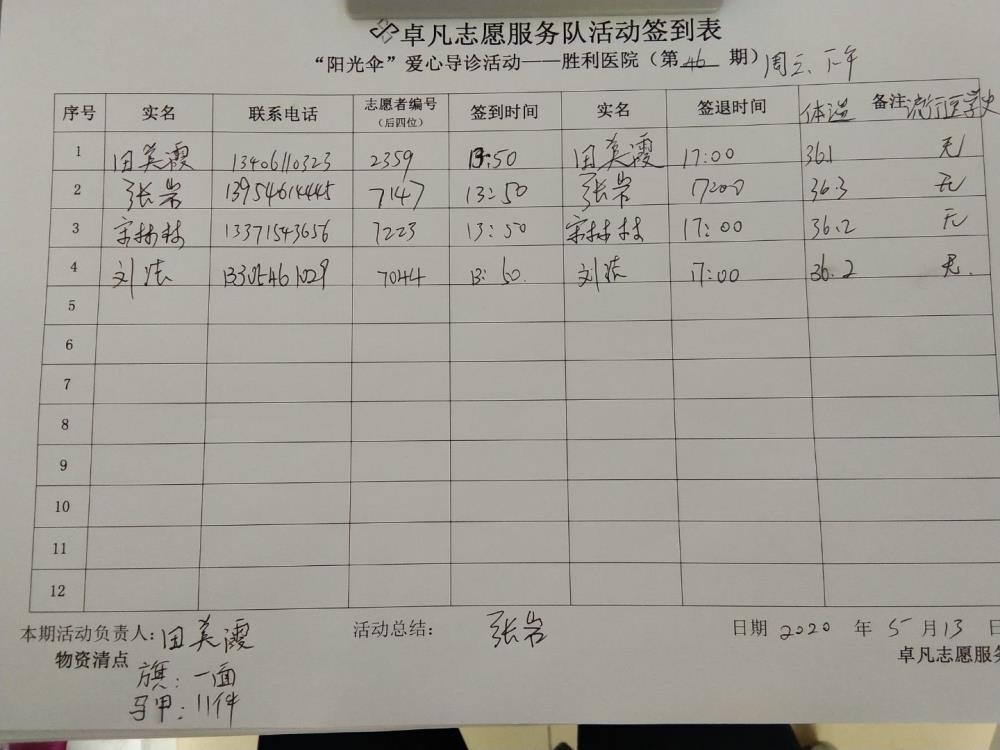 卓凡志愿服务队活动签到表
“阳光伞”爱心导诊活动——胜利医院（第 46 期）周三、下午
序号 实名 联系电话 志愿者编号（后四位） 签到时间 实名 签退时间 体温 备注 流行医学史
1 田美霞 13406110323 2359 13:50 田美霞 17:00 36.1 无
2 张岩 13954614445 7147 13:50 张岩 17:00 36.3 无
3 宋林林 13371543656 7223 13:50 宋林林 17:00 36.2 无
4 刘洁 13305461029 7044 13:50. 刘洁 17:00 36.2 无.
5
6
7
8
9
10
11
12
本期活动负责人：田美霞 活动总结： 张岩 日期 2020 年 5 月 13 日
物资清点 卓凡志愿服务
旗：一面
马甲：11件